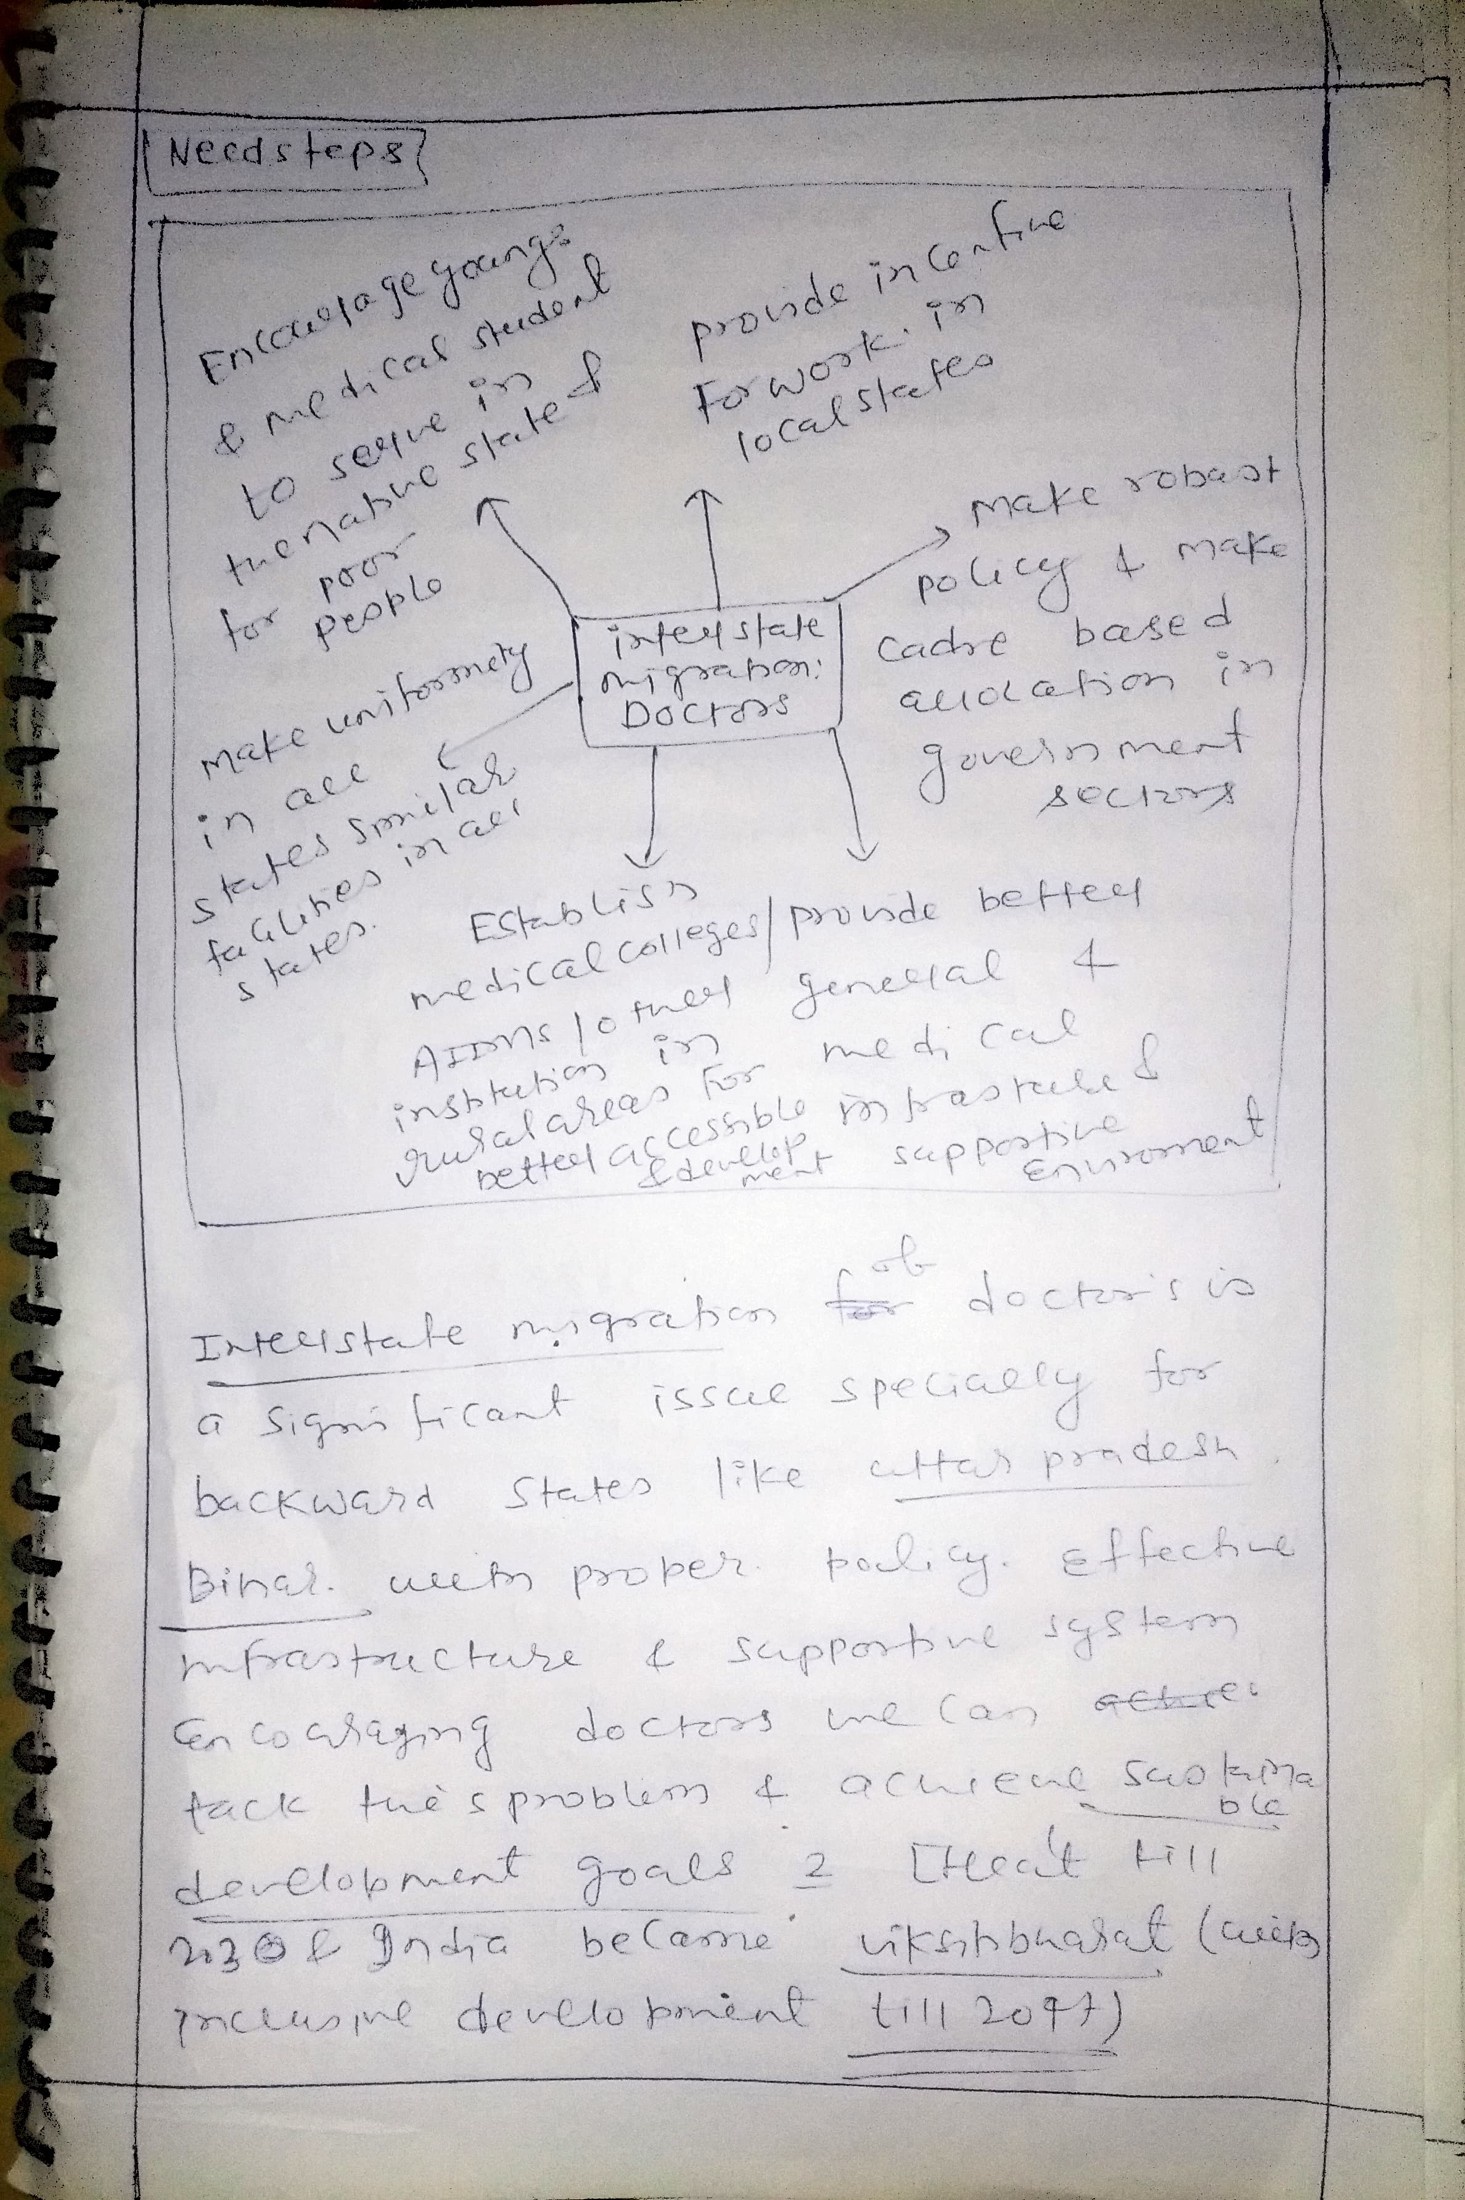 Needsteps
Encourage youngs
& medical student
to serve in
the native state &
for poor
people
provide incentive
For work in
local states
make robast
policy & make
cadre based
allocation in
government
sectors
interstate
migration:
Doctors
make uniformety
in all
states similar
facilities in all
states.
Establish
medical colleges/
AIIMS/other
institution in
rural areas For
better accessible
& develop
ment
provide better
general &
medical
infrastructure &
supportive
Enviroment
Interstate migration for of doctor's is
a significant issue specially for
backward States like uttar pradesh.
Bihar. with proper policy. Effective
infrastructure & supportive system
Encouraging doctors we can
tack the's problem & achieve sustaina
ble
development goals 2 till
2030 & India became viksitbharat (with
inclusive development till 2047)